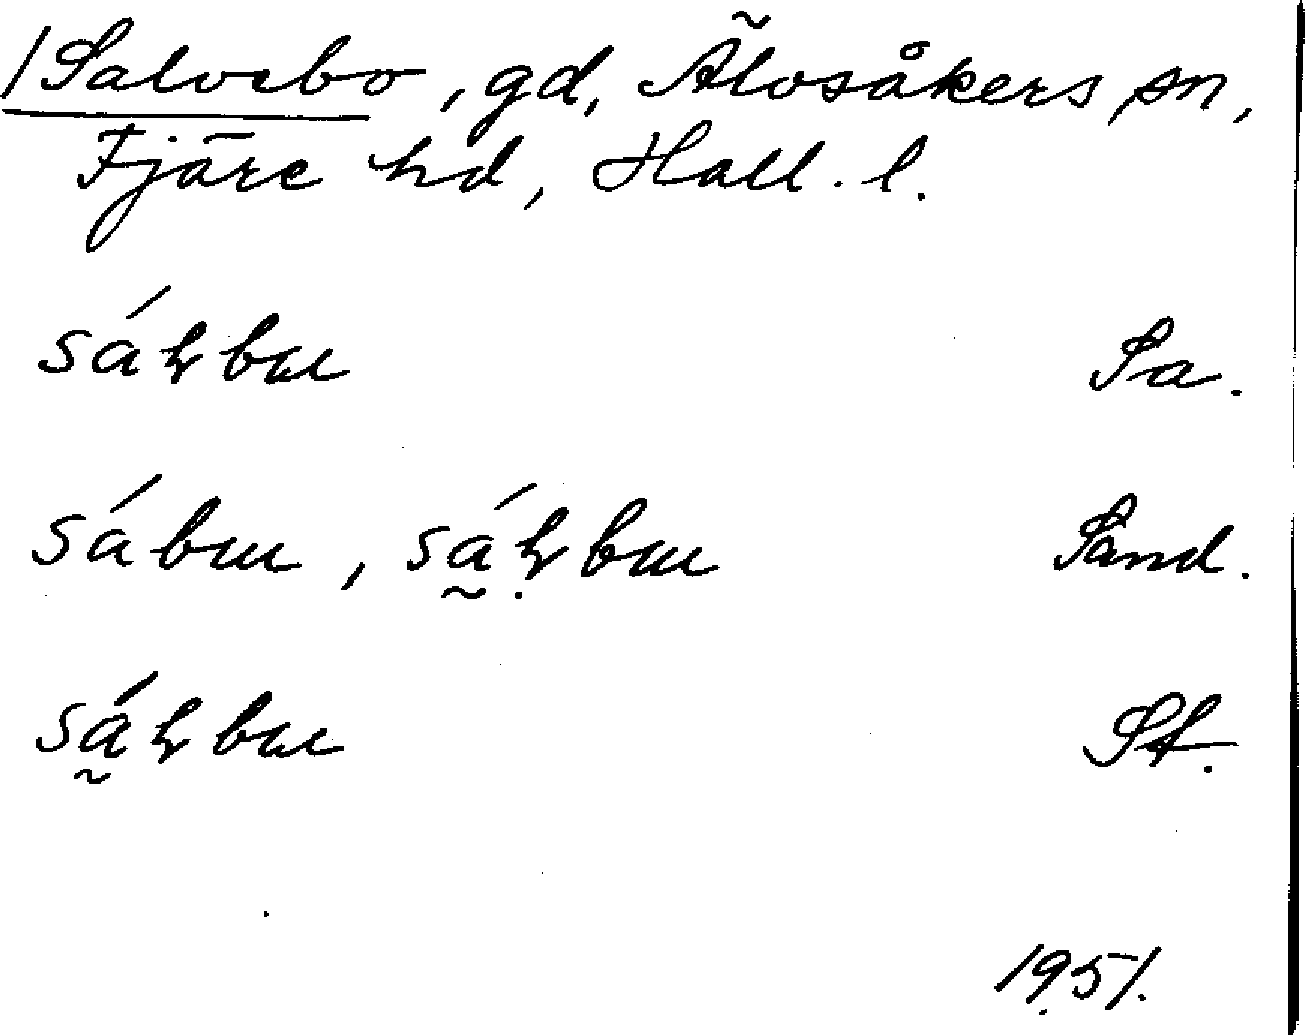 /Salvebo, gd, Älvsåkers sn,
Fjäre hd, Hall. l.
sáꝡbɯ Sa.
sábɯ, sá̰ꝡ̣bɯ Sand.
sá̰ꝡbɯ St.
1951.